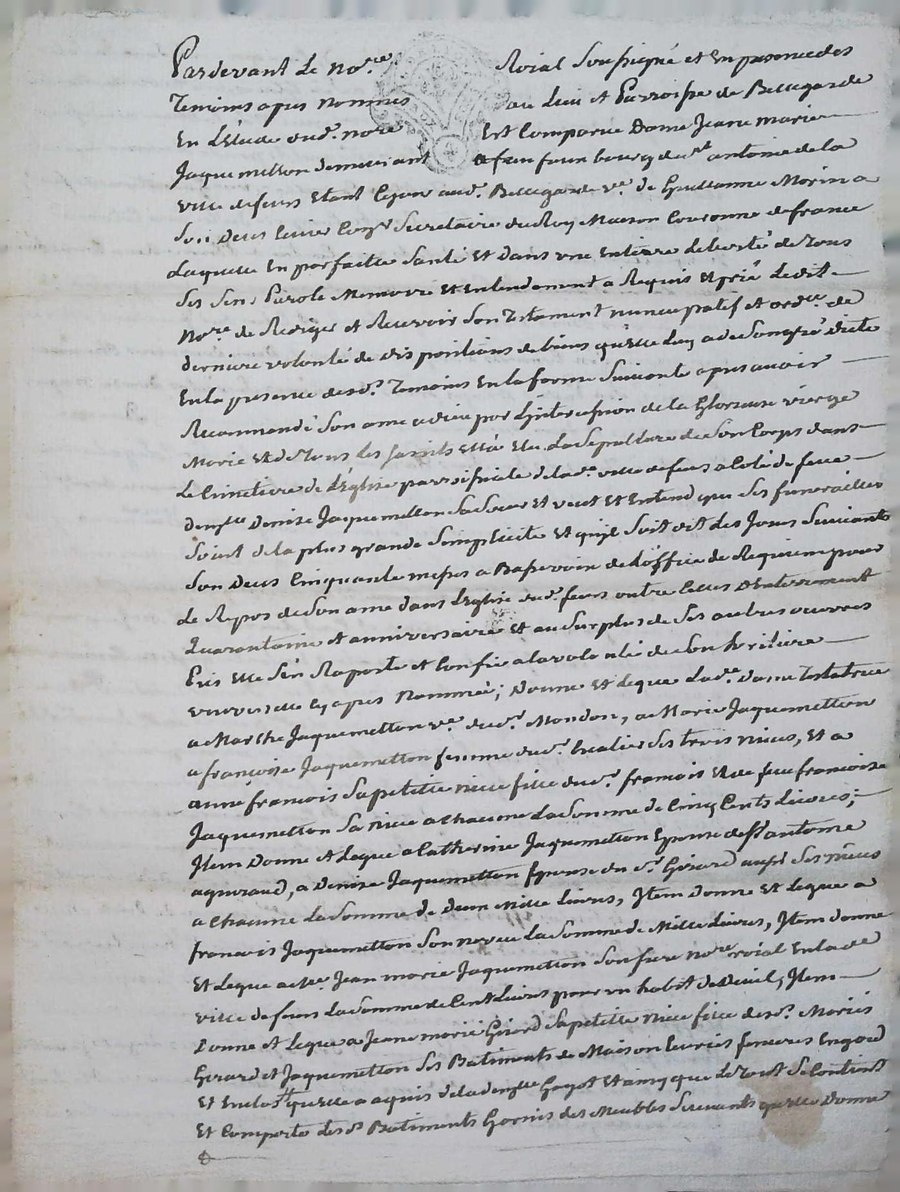 Pardevant Le No.re Roial Soussigné et En presence des
Temoins apres nommés au Lieu et Parroisse de Bellegarde
En L'Etude dud.t No.re Est Comparüe Dame Jeane marie
Jaquemetton demeurant fauxbourg de s.t antoine de la
ville de feurs Etant Ce jour aud.t Bellegarde v.e de Guillaume Morin a
Son Deces Secretaire du Roy Maison Couronne de france
Laquelle En parfaitte Santé Et Dans une Entiere Liberté de Tous
Ses Sens Parole Memoire Et Entendement a Requis Et prié Ledit
No.re de Rediger et Recevoir Son Testament nuncupatif et ord.re de
derniere volonté de dispositions de biens qu'elle Luy a de Son gré dicté
En la presence desd.s Temoins En la forme Suivante apres avoir
Recommandé Son ame a dieu par L'intercession de la Glorieuse vierge
Marie Et de Tous Les Saints Elle La Sepulture de Son Corps dans
Le Cimetiere de L'Eglise parroissiale de lad.e ville de feurs a Coté de feue
dem.lle Denise Jaquemetton Sa Soeur et veut Et Entend que Ses funerailles
Soient de la plus grande Simplicité Et qu'il Soit dit Des Jours Suivants
Son Deces Cinquante messes a Basse voix de L'office de Requiem pour
Le Repos de Son ame dans L'Eglise dud.t feurs outre Celles D'Enterrement
Quarantaine et anniversaire Et au Surplus de Ses autres oeuvres
Pies Elle S'en Raporte et Confie a la volonté de Son heritiere
universelle Cy apres Nommée; Donne Et Legue Lad.e Dame Testatrice
a Marthe Jaquemetton v.e du s.r Mondon, a Marie Jaquemetton
a françoise Jaquemetton femme du s.r Ses trois nieces, Et a
anne françois Sa petite niece fille du s.r françois Et de feue françoise
Jaquemetton Sa niece a Chacune La Somme de Cinq Cents Livres;
Item Donne et Legue a Catherine Jaquemetton Epouse de s.r antoine
aguiraud, a Denise Jaquemetton Epouse du s.r Girard aussi Ses nieces
a Chacune La Somme de Deux Mille Livres, Item Donne Et Legue a
francois Jaquemetton Son neveu La Somme de Mille Livres, Item donne
Et Legue a Me. Jean marie Jaquemetton Son frere No.re roial En lad.e
ville de feurs La Somme de Cent Livres pour un habit de Deuil, Item
Donne et Legue a Jeane marie Girard Sa petite niece fille des s.rs Mariés
Girard et Jaquemetton Ses Batiments de Maison Ecuries fenieres
Et Enclos qu'elle a aquis de la dem.lle Goyot Et ainsy que Le Tout Se Contient
Et Comporte Lesd.s Batiments Garnis des Meubles Suivants qu'elle Donne